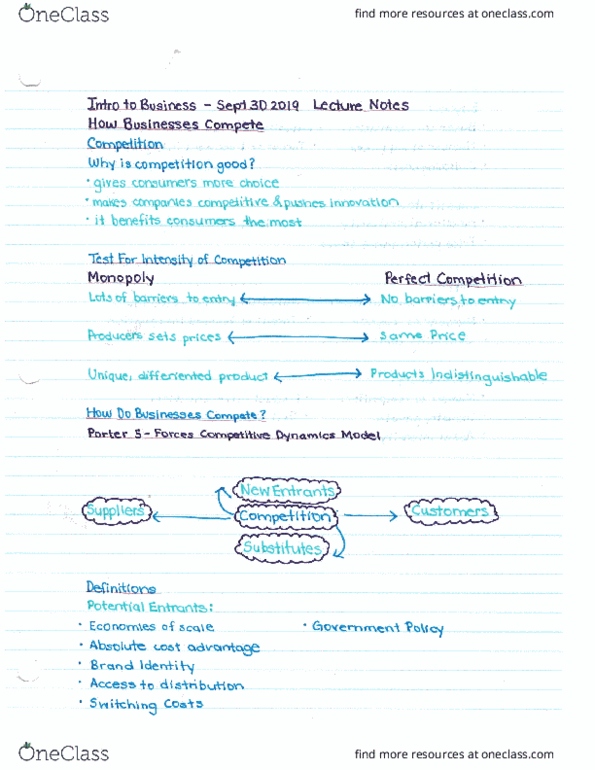 OneClass
find more resources at oneclass.com
Intro to Business - Sept 30 2019 Lecture Notes
How Businesses Compete
Competition
Why is competition good?
• gives consumers more choice
• makes companies competitive & pushes innovation
• it benefits consumers the most
Test For Intensity of Competition
Monopoly Perfect Competition
Lots of barriers to entry No barriers to entry
Producers sets prices Same Price
Unique, differiented product Products indistinguishable
How Do Businesses Compete?
Porter 5-Forces Competitive Dynamics Model
New Entrants
Suppliers Competition Customers
Substitutes
Definitions
Potential Entrants:
• Economies of scale • Government Policy
• Absolute cost advantage
• Brand Identity
• Access to distribution
• Switching Costs
OneClass
find more resources at oneclass.com